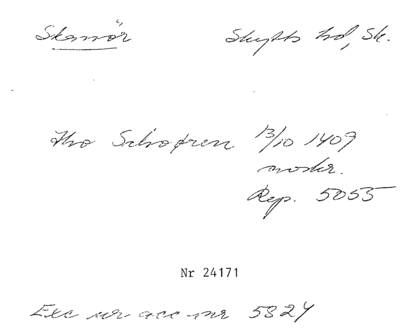 Skanör Skytts hd, Sk.
Tho Schopren 13/10 1409
moder.
Rep. 5055
Nr 24171
Exc ur acc-nr 5824